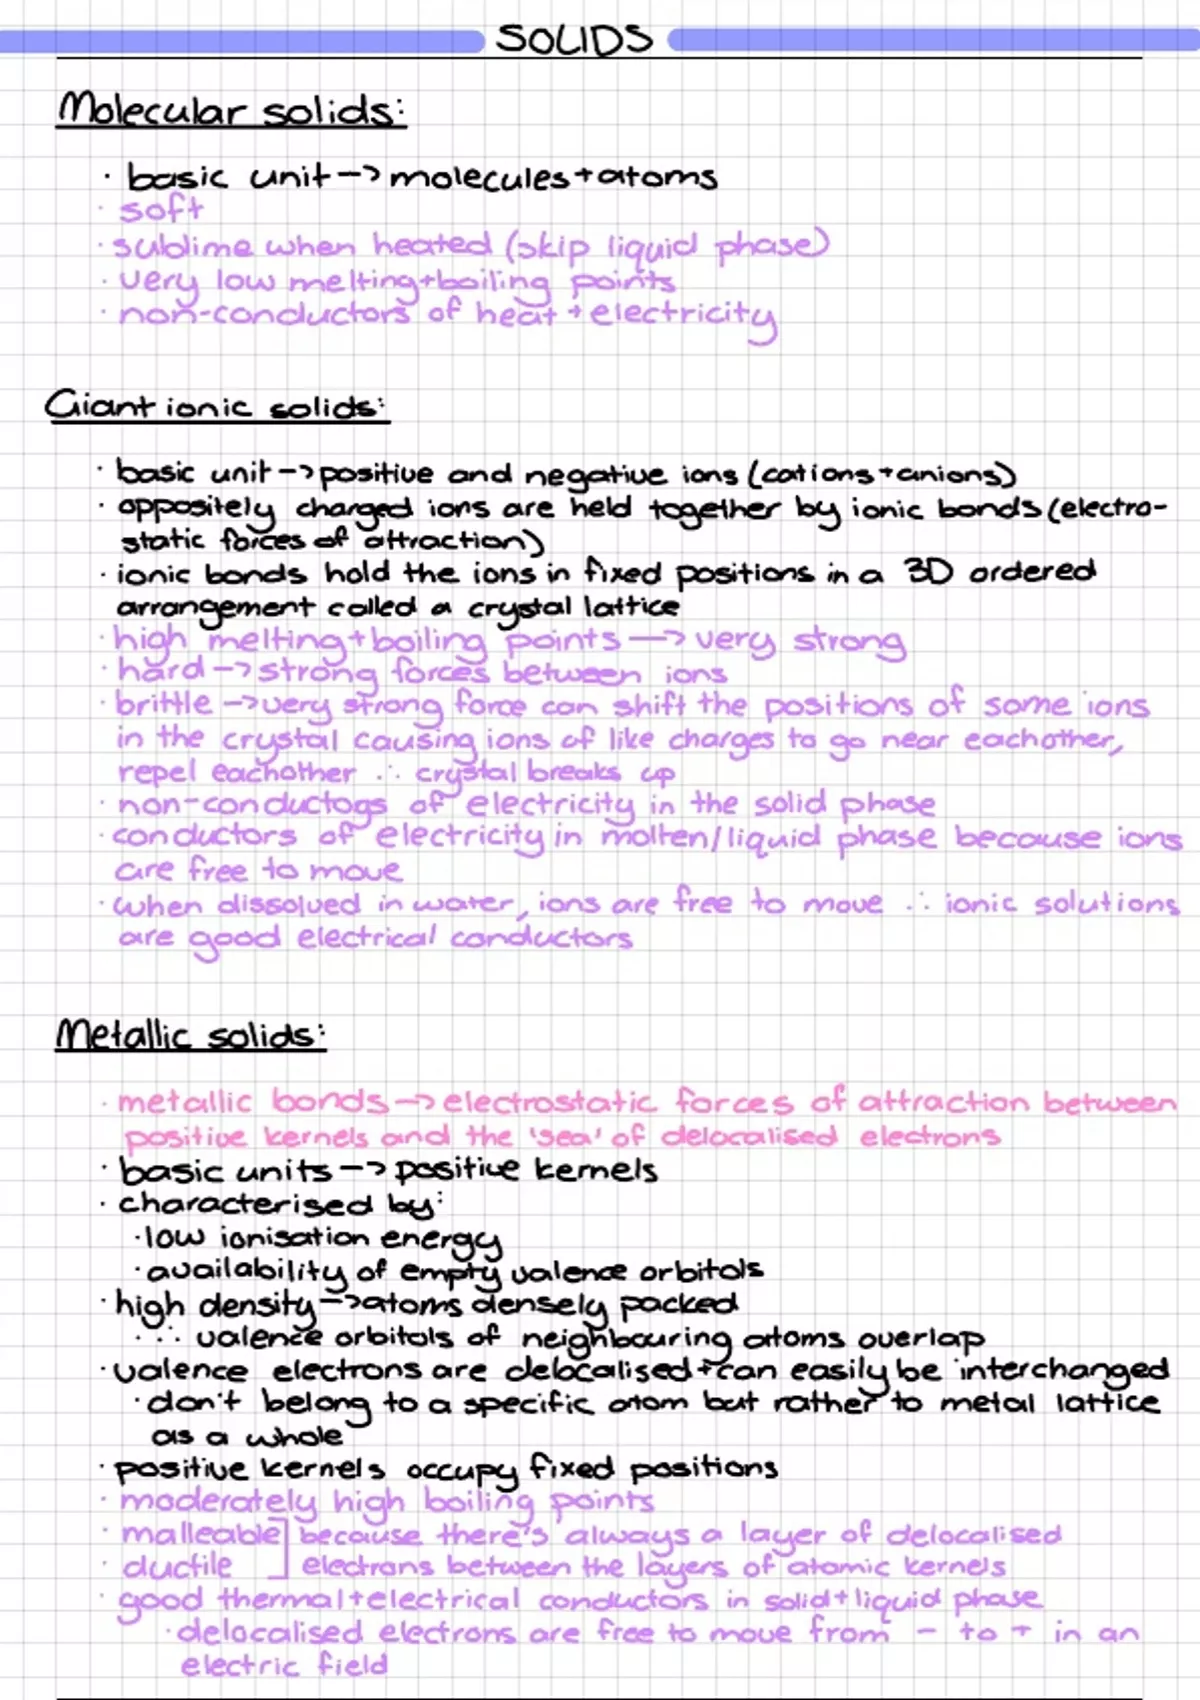 SOLIDS
Molecular solids:
· basic unit -> molecules + atoms
· soft
· sublime when heated (skip liquid phase)
· very low melting + boiling points
· non-conductors of heat + electricity
Giant ionic solids:
· basic unit -> positive and negative ions (cations + anions)
· oppositely charged ions are held together by ionic bonds (electro-
static forces of attraction)
· ionic bonds hold the ions in fixed positions in a 3D ordered
arrangement called a crystal lattice
· high melting + boiling points -> very strong
· hard -> strong forces between ions
· brittle -> very strong force can shift the positions of some ions
in the crystal causing ions of like charges to go near eachother,
repel eachother ∴ crystal breaks up
· non-conductogs of electricity in the solid phase
· conductors of electricity in molten/liquid phase because ions
are free to move
· when dissolved in water, ions are free to move ∴ ionic solutions
are good electrical conductors
Metallic solids:
· metallic bonds -> electrostatic forces of attraction between
positive kernels and the 'sea' of delocalised electrons
· basic units -> positive kernels
· characterised by:
· low ionisation energy
· availability of empty valence orbitals
· high density -> atoms densely packed
· ∴ valence orbitals of neighbouring atoms overlap
· valence electrons are delocalised + can easily be interchanged
· don't belong to a specific atom but rather to metal lattice
as a whole
· positive kernels occupy fixed positions
· moderately high boiling points
· malleable] because there's always a layer of delocalised
· ductile ] electrons between the layers of atomic kernels
· good thermal + electrical conductors in solid + liquid phase
· delocalised electrons are free to move from - to + in an
electric field